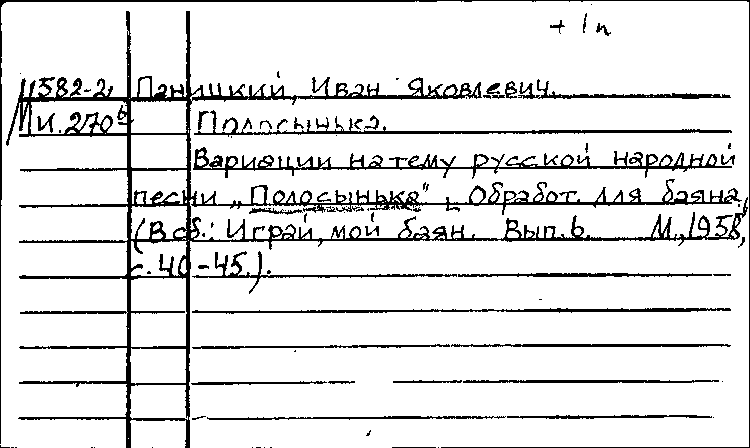 + 1 п
М582-2, Паницкий, Иван Яковлевич.
И.270⁶ Полосынька.
Вариации на тему русской народной
песни „Полосынька“, Обработ. для баяна,
(В сб.: Играй, мой баян. Вып. 6. М., 1958,
с. 40-45.).